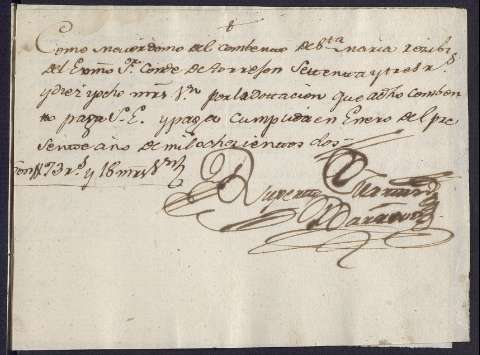 Como Mayordomo del Combento de Sta. Maria rezibi
del Exmo. Sr. Conde de Torrejon Setenta y tres rs.
y diez y ocho mrs. Vn. por la dotacion que a dho Comben
to paga S. E. y paga Cumplida en Enero del pre
sente año de mil ochozientos dos
Son 73 rs. y 18 mrs Vn
Ruperto